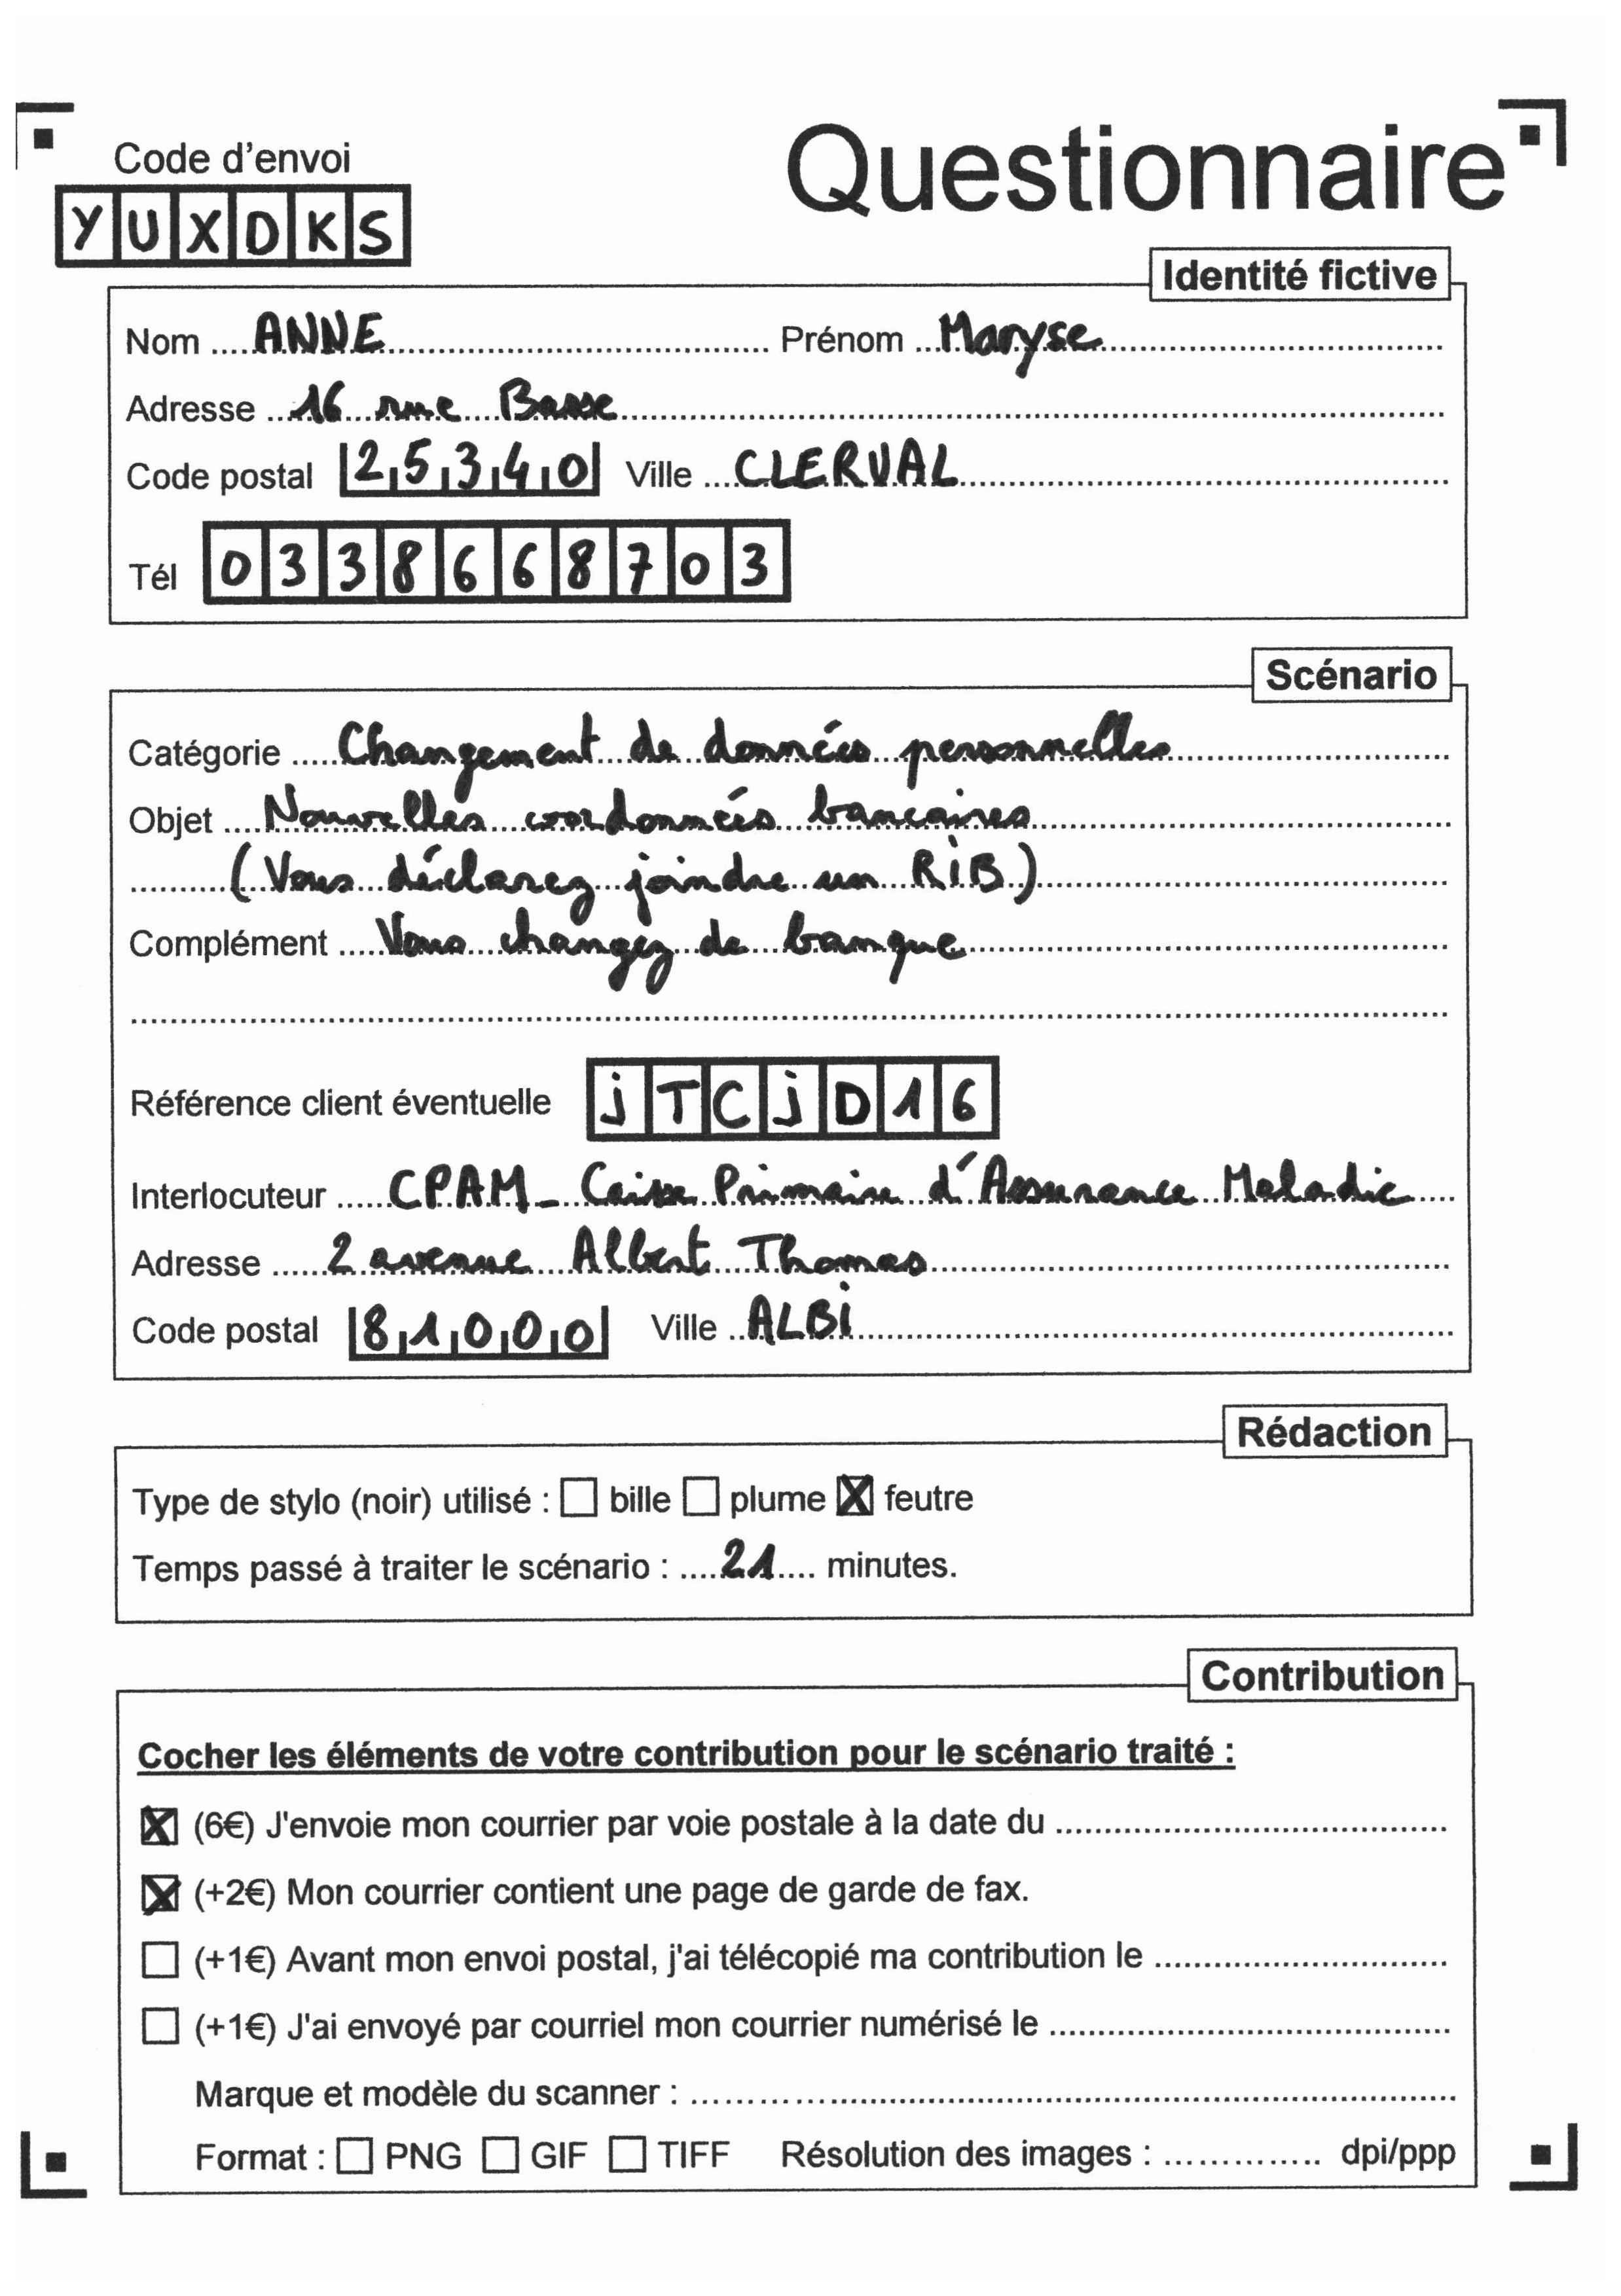 Code d'envoi
Questionnaire
YUXDKS
Identité fictive
Nom ANNE Prénom Maryse
Adresse 16 rue Basse
Code postal 25340 Ville CLERVAL
Tél 0338668703
Scénario
Catégorie Changement de données personnelles
Objet Nouvelles coordonnées bancaires
(Vous déclarez joindre un RiB)
Complément Vous changez de banque
Référence client éventuelle jTCjD16
Interlocuteur CPAM - Caisse Primaire d'Assurance Maladie
Adresse 2 avenue Albert Thomas
Code postal 81000 Ville ALBi
Rédaction
Type de stylo (noir) utilisé : ☐ bille ☐ plume ☒ feutre
Temps passé à traiter le scénario : 21 minutes.
Contribution
Cocher les éléments de votre contribution pour le scénario traité :
☒ (6€) J'envoie mon courrier par voie postale à la date du
☒ (+2€) Mon courrier contient une page de garde de fax.
☐ (+1€) Avant mon envoi postal, j'ai télécopié ma contribution le
☐ (+1€) J'ai envoyé par courriel mon courrier numérisé le
Marque et modèle du scanner :
Format : ☐ PNG ☐ GIF ☐ TIFF Résolution des images : dpi/ppp